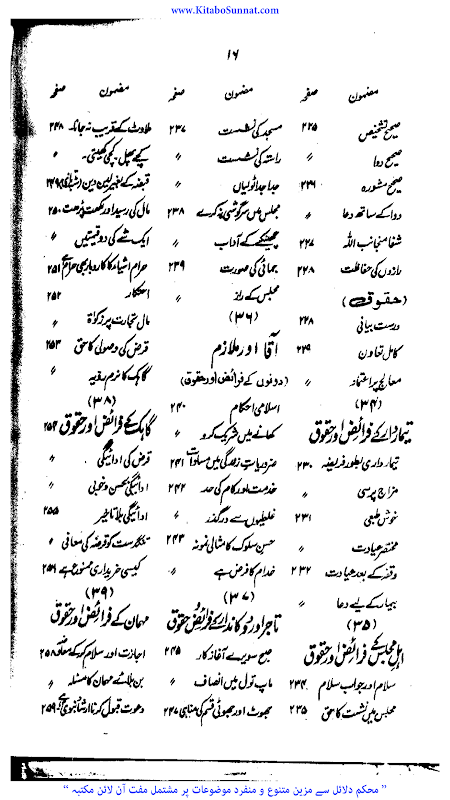 www.KitaboSunnat.com
۱۶
مضمون صفحہ
صحیح تشخیص ۲۲۵
صحیح دوا 〃
صحیح مشورہ ۲۲۶
دوا کے ساتھ دعا 〃
شفا منجانب اللہ ۲۲۷
رازوں کی حفاظت ۲۲۸
(حقوق)
درست بیانی ۲۲۸
کامل تعاون ۲۲۹
معالج پر اعتماد 〃
(۳۴)
تیماردار کے فرائض اور حقوق
تیمارداری بطور فریضہ ۲۳۰
مزاج پرسی 〃
خوش طبعی ۲۳۱
مختصر عیادت 〃
وقفہ کے بعد عیادت ۲۳۲
بیمار کے لیے دعا 〃
(۳۵)
اہل مجلس کے فرائض اور حقوق
سلام اور جواب سلام ۲۳۴
مجلس میں نشست کا حق ۲۳۵
مضمون صفحہ
مسجد کی نشست ۲۳۷
راستہ کی نشست 〃
جدا جدا ٹولیاں 〃
مجلس میں سرگوشی نہ کرے ۲۳۸
چھینکنے کے آداب 〃
جمائی کی صورت ۲۳۹
مجلس کے راز 〃
(۳۶)
آقا اور ملازم
(دونوں کے فرائض اور حقوق)
اسلامی احکام ۲۴۰
کھانے میں شریک کرو 〃
ضروریات زندگی میں مساوات ۲۴۱
خدمت اور کام کی حد ۲۴۲
غلطیوں سے درگذر 〃
حسن سلوک کا مثالی نمونہ ۲۴۳
خدام کا فرض ہے 〃
(۳۷)
تاجر اور دوکاندار کے فرائض و حقوق
صبح سویرے آغاز کار ۲۴۵
ماپ تول میں انصاف 〃
جھوٹ اور جھوٹی قسم کی مناہی ۲۴۷
مضمون صفحہ
ملاوٹ کے قریب نہ جانا ۲۴۸
کچے پھل۔ کچی کھیتی۔ 〃
قبضہ کے بغیر لین دین ۲۴۹
مال کی رسید اور لکھت پڑھت ۲۵۰
ایک شے کی دو قیمتیں 〃
حرام اشیاء کا کاروبار بھی حرام ہے ۲۵۱
احتکار ۲۵۲
مال تجارت پر زکوٰۃ 〃
قرض کی وصولی کا حق ۲۵۳
گاہک کا نرم رویہ 〃
(۳۸)
گاہک کے فرائض اور حقوق ۲۵۴
قرض کی ادائیگی 〃
ادائیگی بحسن و خوبی 〃
ادائیگی بلا تاخیر ۲۵۵
تنگدست کو قرضہ کی معافی 〃
کیسی خریداری ممنوع ہے ۲۵۶
(۳۹)
مہمان کے فرائض اور حقوق
اجازت اور سلام کر کے ۲۵۸
بن بلائے مہمان کا مسئلہ 〃
دعوت قبول کرنا ارشاد نبوی ہے ۲۵۹
" محکم دلائل سے مزین متنوع و منفرد موضوعات پر مشتمل مفت آن لائن مکتبہ "